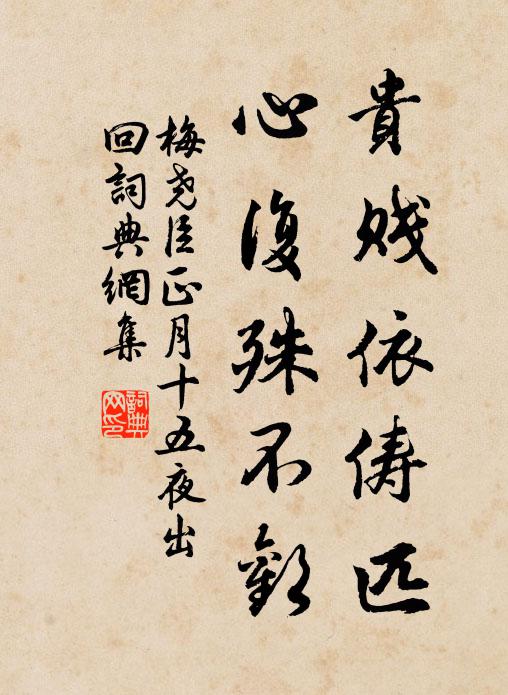 貴賤依儔匹
心復殊不歡
梅堯臣正月十五夜出
回詞典網集
詞典
网印